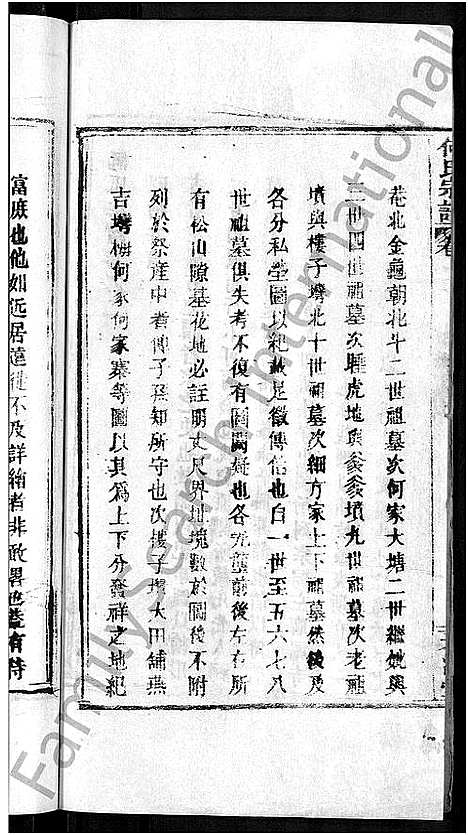 何氏宗譜 卷
巷北金龜朝北斗二世祖墓次何家大塘二世繼妣與
三世四世祖墓次睡虎地與爹爹墳九世祖墓次老龍
墳與樓子塆北十世祖墓次細方家上下祖墓然後及
各分私塋圖以紀故足徵傳信也自一世至五六七八
世祖墓俱失考不復有圖闕疑也各先塋前後左右所
有松山隙墓花地必註明丈尺界址境數於圖後不附
列於祭產中者俾子孫知所守也次樓子塆大田舖燕
吉塆梅何家何家寨等圖以其為上下分發祥之地紀
富庶也他如近居遠徙不及詳繪者非敢畧也蓋有待
FamilySearch International